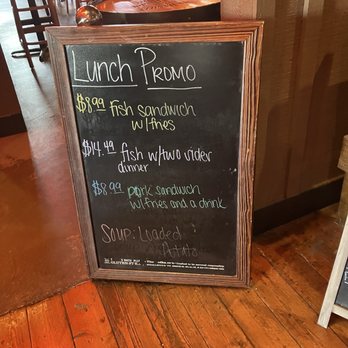 Lunch Promo
$8.99 fish sandwich
w/fries
$14.49 fish w/two sides
dinner
$8.99 pork sandwich
w/fries and a drink
Soup: Loaded
Potato